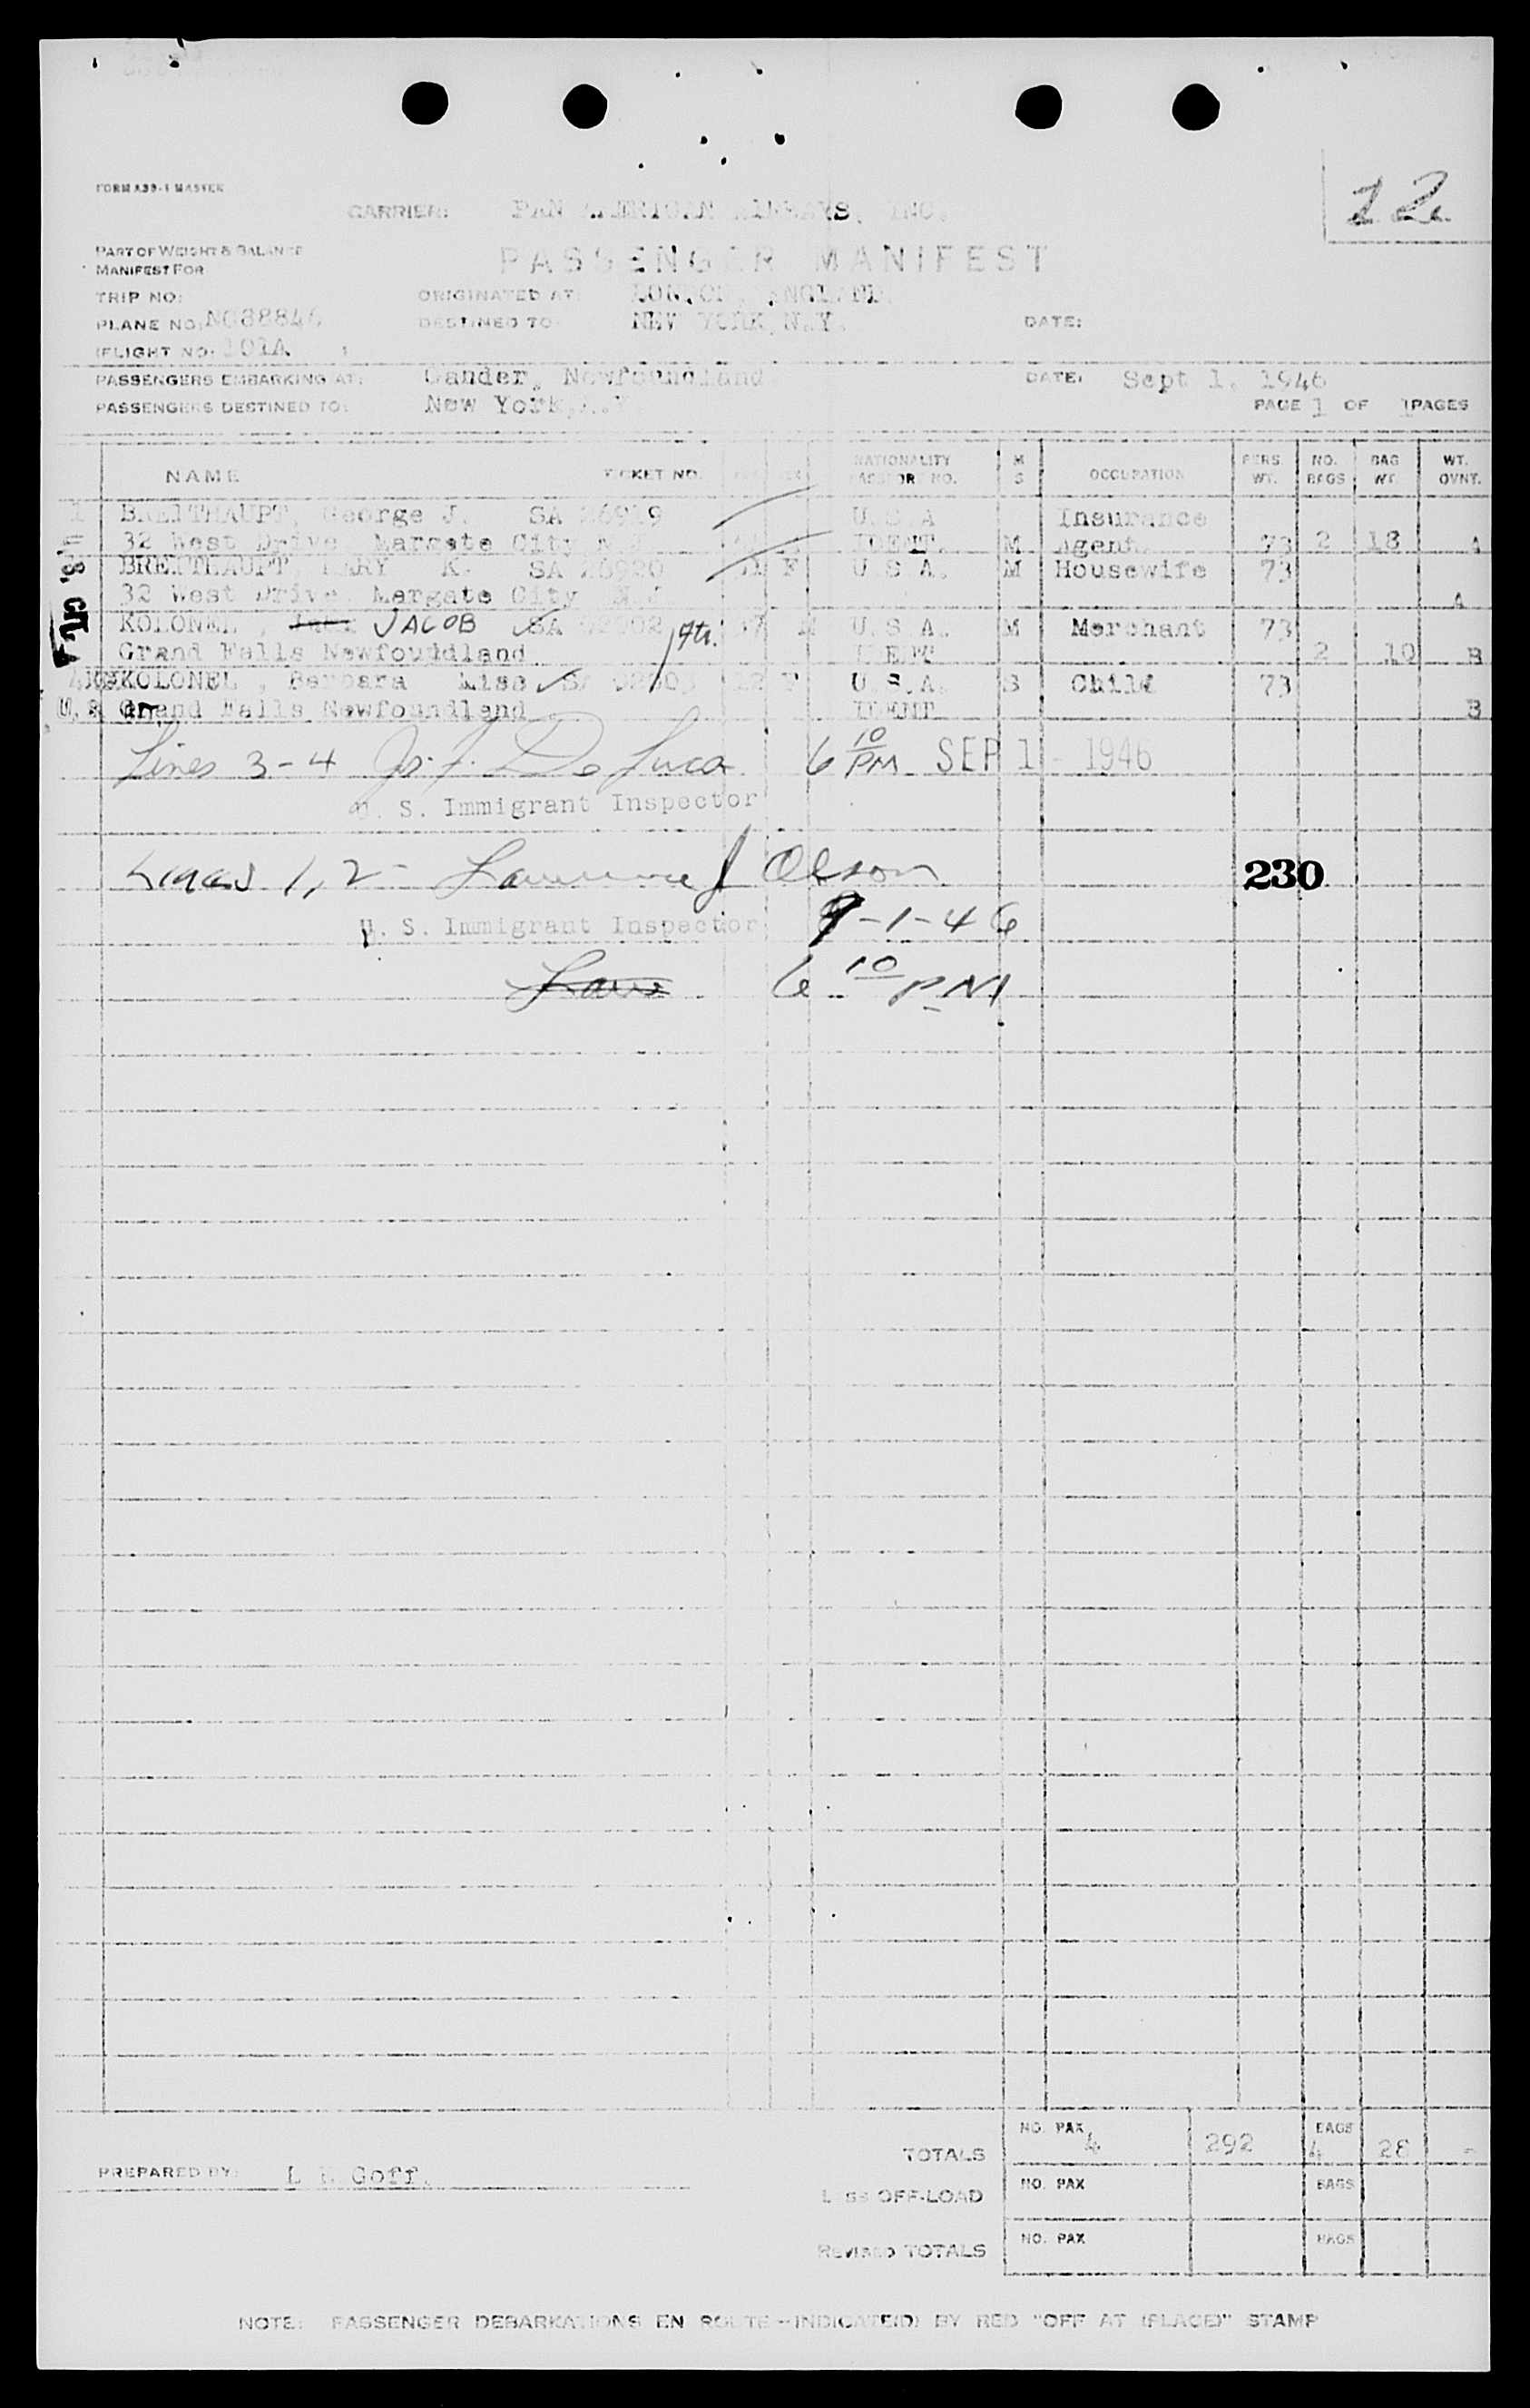 FORM A39-1 MASTER
12
CARRIER: PAN AMERICAN AIRWAYS, INC.
PART OF WEIGHT & BALANCE
MANIFEST FOR
PASSENGER MANIFEST
TRIP NO:
ORIGINATED AT: LONDON, ENGLAND
PLANE NO: NC88846
DESTINED TO: NEW YORK, N.Y.
DATE:
FLIGHT NO. 101A
PASSENGERS EMBARKING AT: Gander, Newfoundland
DATE: Sept 1, 1946
PASSENGERS DESTINED TO: New York, N.Y.
PAGE 1 OF 1 PAGES
NAME TICKET NO. NATIONALITY PASSPORT NO. M S OCCUPATION PERS. WT. NO. BAGS BAG WT. WT. OVNT.
1 BREITHAUPT, George J. SA 26919 U.S.A Insurance
32 West Drive Margate City N.J. IDENT. M Agent. 73 2 18 A
BREITHAUPT, MARY K. SA 26920 F U.S.A. M Housewife 73
32 West Drive Margate City N.J. A
KOLONEL, JACOB SA U.S.A. M Merchant 73
Grand Falls Newfouddland 2 10 B
KOLONEL, Barbara Miss SA F U.S.A. S Child 73
Grand Falls Newfoundland IDENT B
Lines 3-4 Jos. F. De Luca 6 10 PM SEP 1 - 1946
U. S. Immigrant Inspector
Lines 1, 2 - Lawrence J Olson 230
U. S. Immigrant Inspector 9-1-46
6 10 PM
TOTALS NO. PAX 4 292 BAGS 4 28 -
PREPARED BY: Goff.
Less OFF-LOAD NO. PAX BAGS
REVISED TOTALS NO. PAX BAGS
NOTE: PASSENGER DEBARKATIONS EN ROUTE - INDICATE(D) BY RED "OFF AT (PLACE)" STAMP